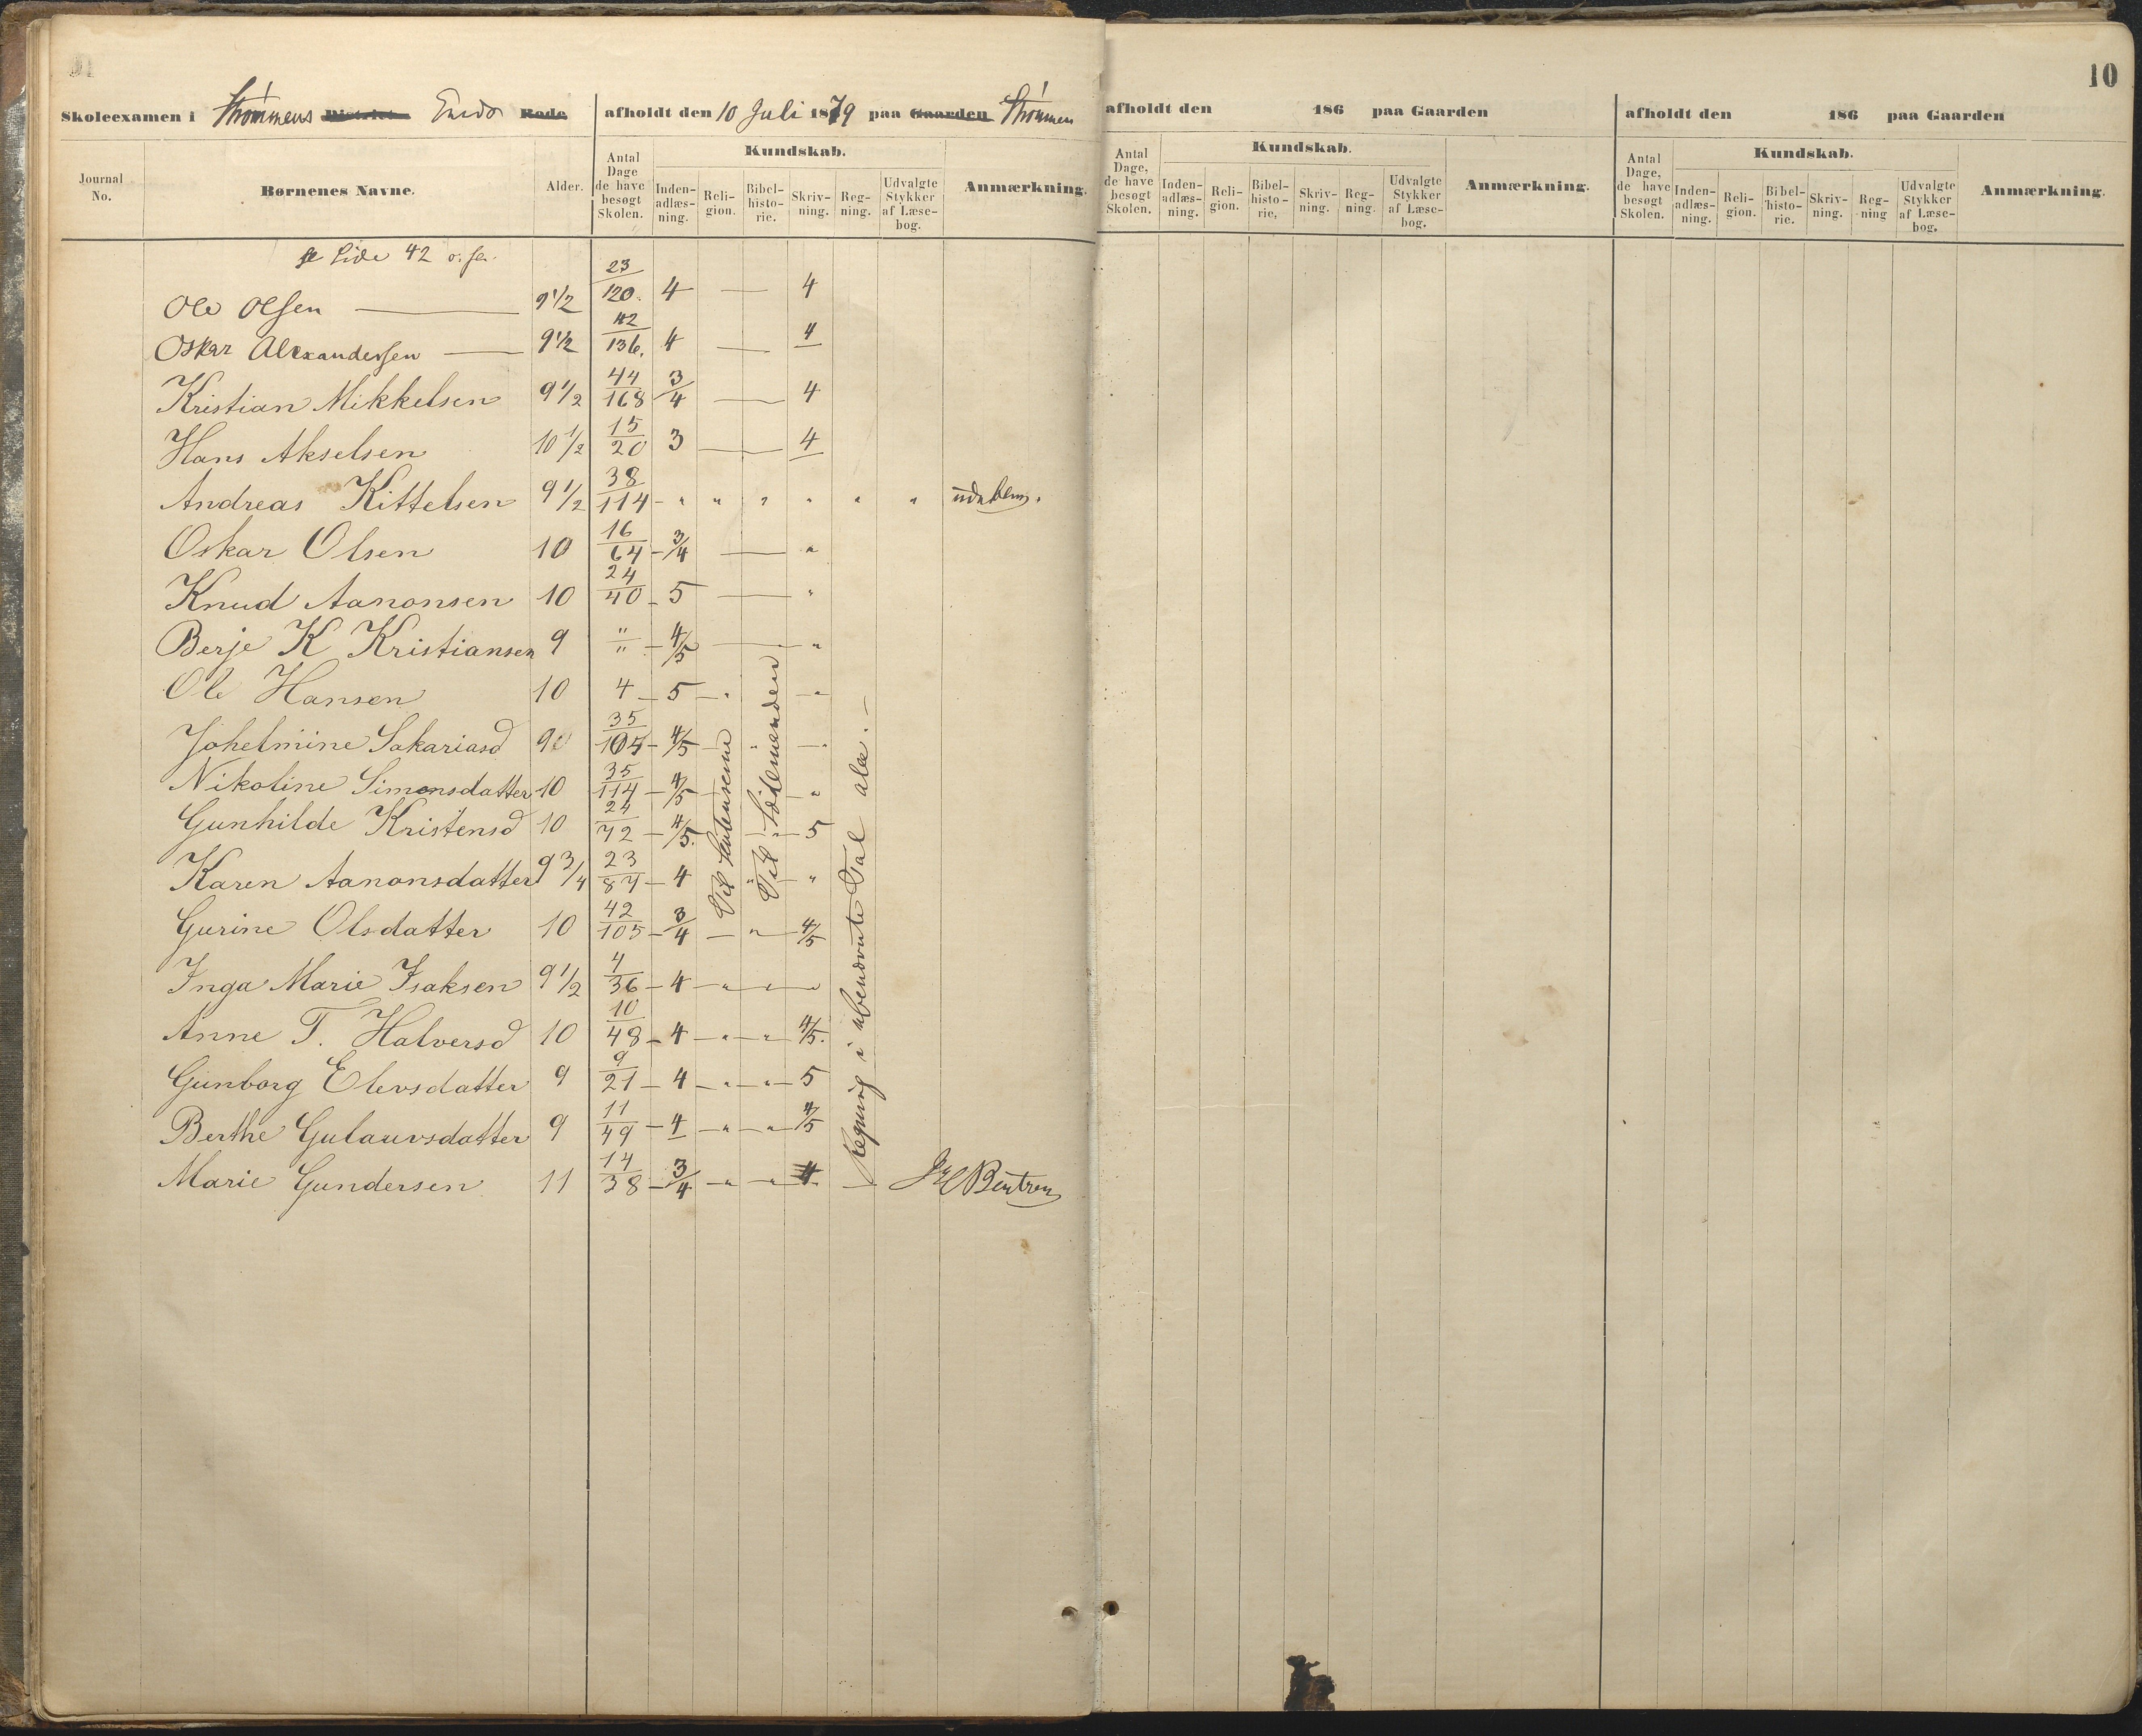 10
Skoleexamen i Strømmens District Rode afholdt den 10 Juli 1879 paa Gaarden Strømmen
Journal No. Børnenes Navne. Alder. Antal Dage de have besøgt Skolen. Kundskab. Inden-adlæs-ning. Reli-gion. Bibel-histo-rie. Skriv-ning. Reg-ning. Udvalgte Stykker af Læse-bog. Anmærkning.
se Side 42
Ole Olsen — 9 1/2 23/120. 4 — 4
Oskar Alexandersen — 9 1/2 42/136. 4 — 4
Kristian Mikkelsen 9 1/2 44/168 3/4 — 4
Hans Akselsen 10 1/2 15/20 3 — 4
Andreas Kittelsen 9 1/2 38/114 - " " " " " "
Oskar Olsen 10 16/64 - 3/4 — "
Knud Aanonsen 10 24/40 - 5 — "
Berje K Kristiansen 9 "/" - 4/5 — "
Ole Hansen 10 4 - 5 - " - "
Johelmine Sakariasd 9 35/105 - 4/5 - " - "
Nikoline Simonsdatter 10 35/114 - 4/5 - "
Gunhilde Kristensd 10 24/72 - 4/5. - " - 5
Karen Aanonsdatter 9 3/4 23/87 - 4 " - "
Gurine Olsdatter 10 42/105 - 3/4 - " - 4/5
Inga Marie Isaksen 9 1/2 4/36 - 4 - " - " - "
Anne T. Halversd 10 10/48 - 4 - " - " - 4/5.
Gunborg Elevsdatter 9 9/21 - 4 - " - " - 5
Berthe Gulauvsdatter 9 11/49 - 4 - " - " - 4/5
Marie Gundersen 11 14/38 - 3/4 - " - " - 4. —
Regning i ubenævnte Tal alle. —
afholdt den 186 paa Gaarden
Antal Dage, de have besøgt Skolen. Kundskab. Inden-adlæs-ning. Reli-gion. Bibel-histo-rie, Skriv-ning. Reg-ning. Udvalgte Stykker af Læse-bog. Anmærkning.
afholdt den 186 paa Gaarden
Antal Dage, de have besøgt Skolen. Kundskab. Inden-adlæs-ning. Reli-gion. Bibel-histo-rie. Skriv-ning. Reg-ning Udvalgte Stykker af Læse-bog. Anmærkning.